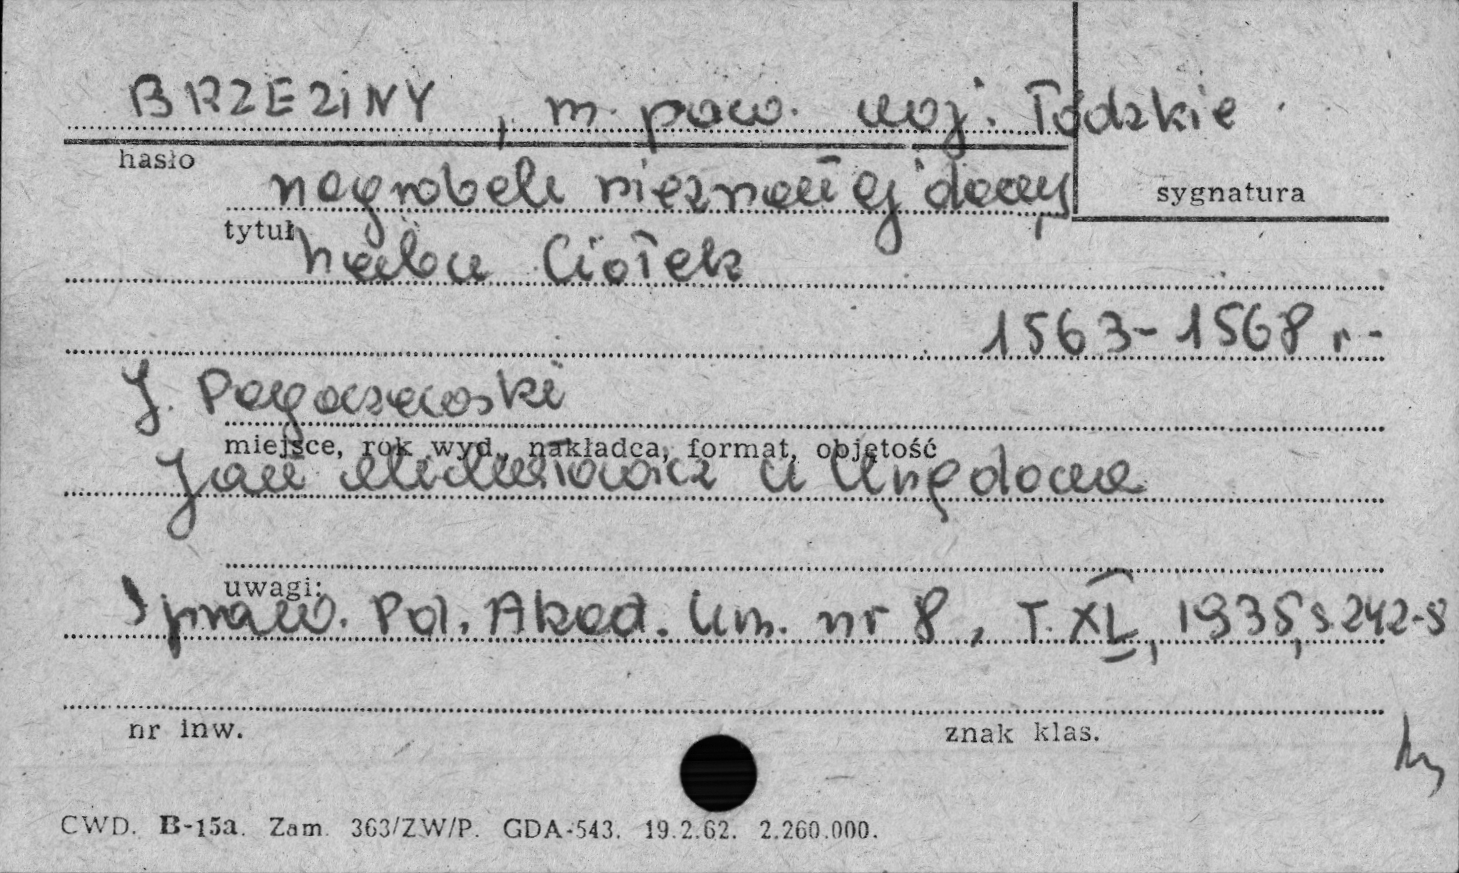 BRZEZINY, m. pow. woj. Łódzkie
hasło
nagrobek nieznanej damy
sygnatura
tytuł
herbu Ciołek
1563-1568 r.
J. Pagaczewski
miejsce, rok wyd., nakładca, format, objętość
Jan Michałowicz z Urzędowa
uwagi:
Spraw. Pol. Akad. Um. nr 8, T. XL, 1935, s. 242-8
nr inw.
znak klas.
CWD. B-15a. Zam. 363/ZW/P. GDA-543. 19.2.62. 2.260.000.